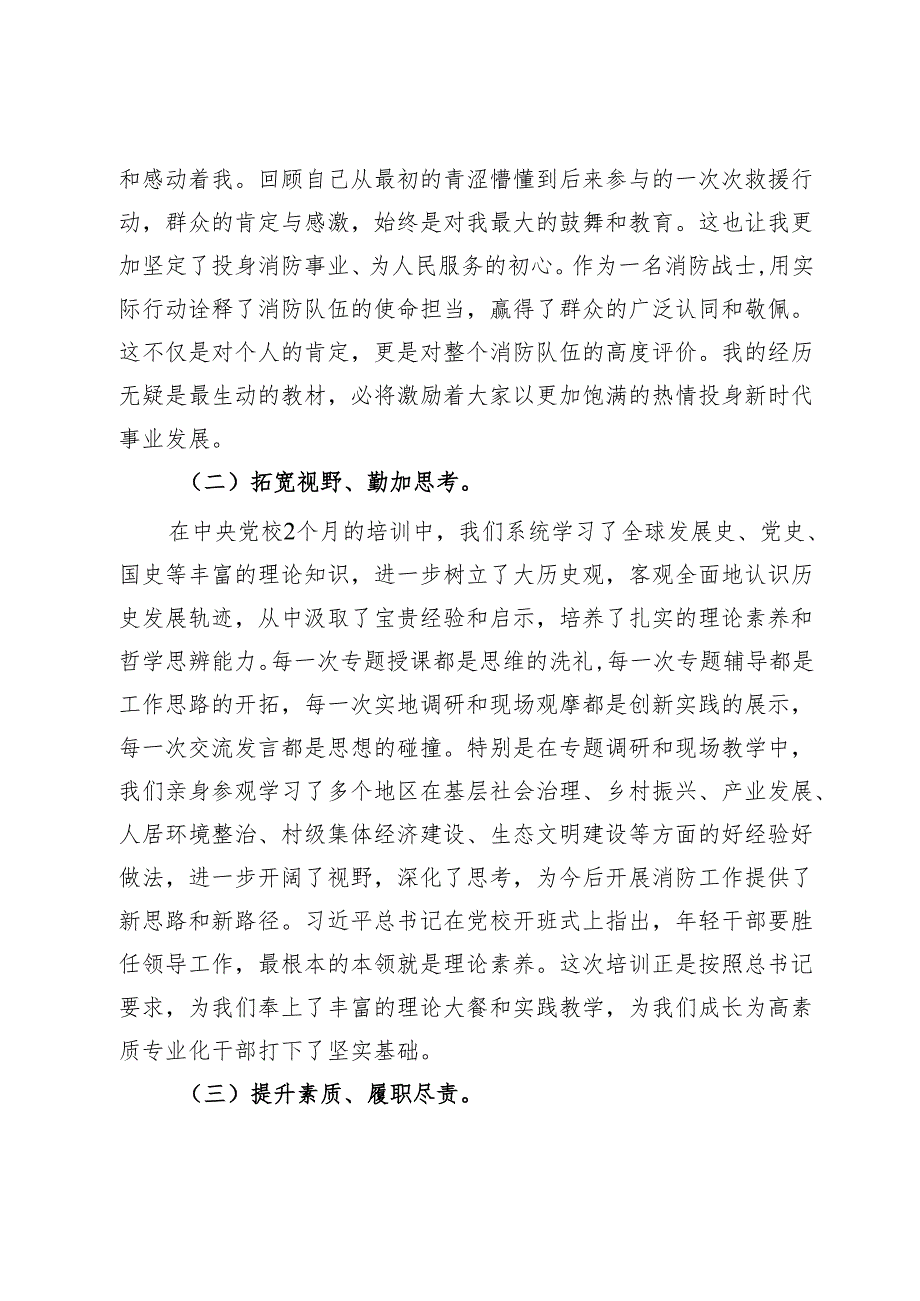 和感动着我。回顾自己从最初的青涩懵懂到后来参与的一次次救援行
动，群众的肯定与感激，始终是对我最大的鼓舞和教育。这也让我更
加坚定了投身消防事业、为人民服务的初心。作为一名消防战士,用实
际行动诠释了消防队伍的使命担当，赢得了群众的广泛认同和敬佩。
这不仅是对个人的肯定，更是对整个消防队伍的高度评价。我的经历
无疑是最生动的教材，必将激励着大家以更加饱满的热情投身新时代
事业发展。
（二）拓宽视野、勤加思考。
在中央党校2个月的培训中，我们系统学习了全球发展史、党史、
国史等丰富的理论知识，进一步树立了大历史观，客观全面地认识历
史发展轨迹，从中汲取了宝贵经验和启示，培养了扎实的理论素养和
哲学思辨能力。每一次专题授课都是思维的洗礼,每一次专题辅导都是
工作思路的开拓，每一次实地调研和现场观摩都是创新实践的展示，
每一次交流发言都是思想的碰撞。特别是在专题调研和现场教学中，
我们亲身参观学习了多个地区在基层社会治理、乡村振兴、产业发展、
人居环境整治、村级集体经济建设、生态文明建设等方面的好经验好
做法，进一步开阔了视野，深化了思考，为今后开展消防工作提供了
新思路和新路径。习近平总书记在党校开班式上指出，年轻干部要胜
任领导工作，最根本的本领就是理论素养。这次培训正是按照总书记
要求，为我们奉上了丰富的理论大餐和实践教学，为我们成长为高素
质专业化干部打下了坚实基础。
（三）提升素质、履职尽责。